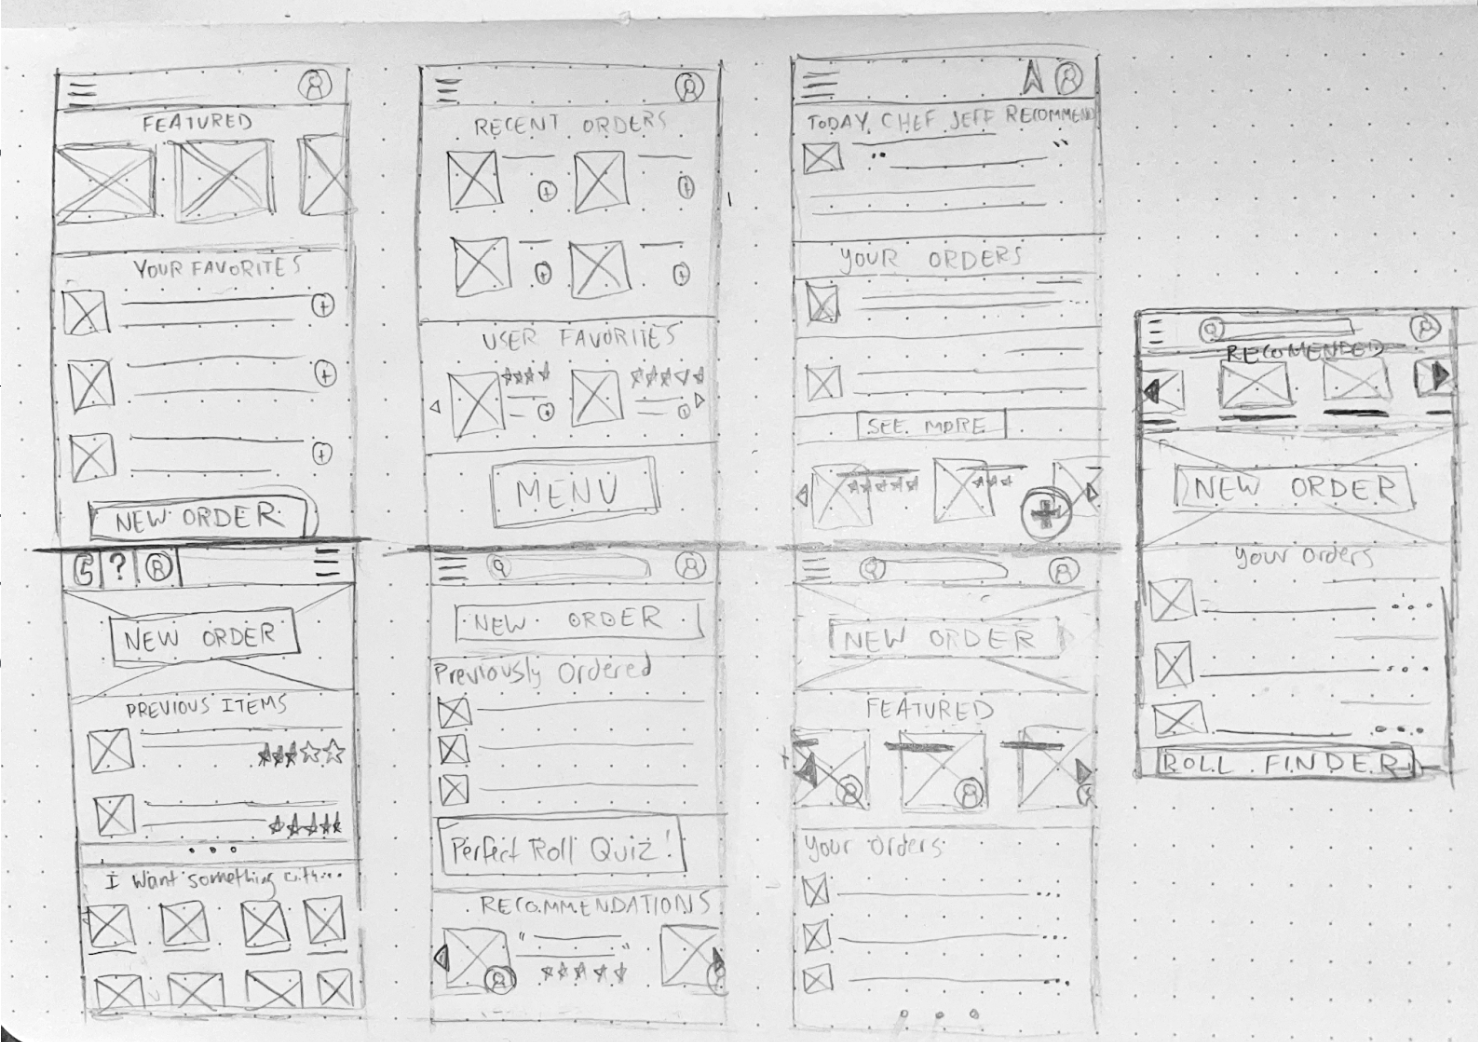 FEATURED
YOUR FAVORITES
NEW ORDER
RECENT ORDERS
USER FAVORITES
MENU
TODAY, CHEF JEFF RECOMMEND
YOUR ORDERS
SEE MORE
?
NEW ORDER
PREVIOUS ITEMS
I want something
NEW ORDER
Previously Ordered
Perfect Roll Quiz!
RECOMMENDATIONS
NEW ORDER
FEATURED
Your Orders
RECOMENDED
NEW ORDER
Your Orders
ROLL FINDER